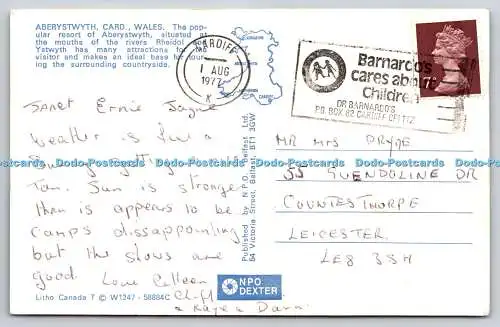 ABERYSTWYTH, CARD., WALES. The pop-
ular resort of Aberystwyth, situated at
the mouths of the rivers Rheidol and
Ystwyth has many attractions for the
visitor and makes an ideal base for tour-
ing the surrounding countryside.
CARDIFF
1 AUG
1977
X
Barnardo's
cares about
Children
DR BARNARDO'S
P.O. BOX 62 CARDIFF CF1 1TZ
Janet Ernie Jayne
Weather is
Tan. Sun is stronger
than is appears to be
Camps disappointing
but the shows are
good. Love Colleen
Cliff
& Kaye & Dawn.
Published by N.P.O. Belfast Ltd.
54 Victoria Street, Belfast, BT1 3GW
MR MRS PRYDE
55 GUENDOLINE DR
COUNTESTHORPE
LEICESTER.
LE8 3SH
Dodo-Postcards Dodo-Postcards Dodo-Postcards Dodo-Postcards Dodo-Postcards Dodo-Postcards
Litho Canada T © W1247 - 58884C
NPO
DEXTER